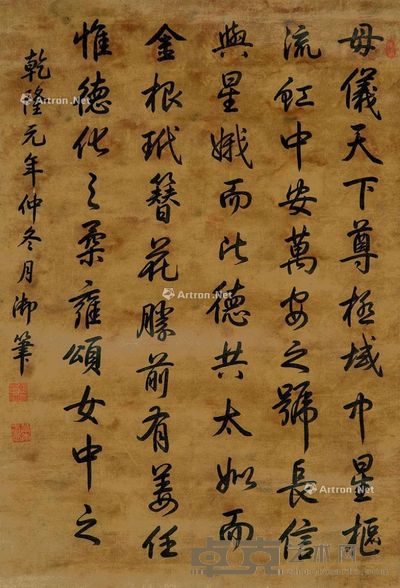 母儀天下尊極域中星樞
流虹中安萬安之號長信
與星娥而比德共太姒而
金根玳簪花勝前有姜任
惟德化之柔雍頌女中之
乾隆元年仲冬月御筆
Artron.Net
Artron.Net
Artron.Net
Artron.Net
Artron.Net
卓克艺术网